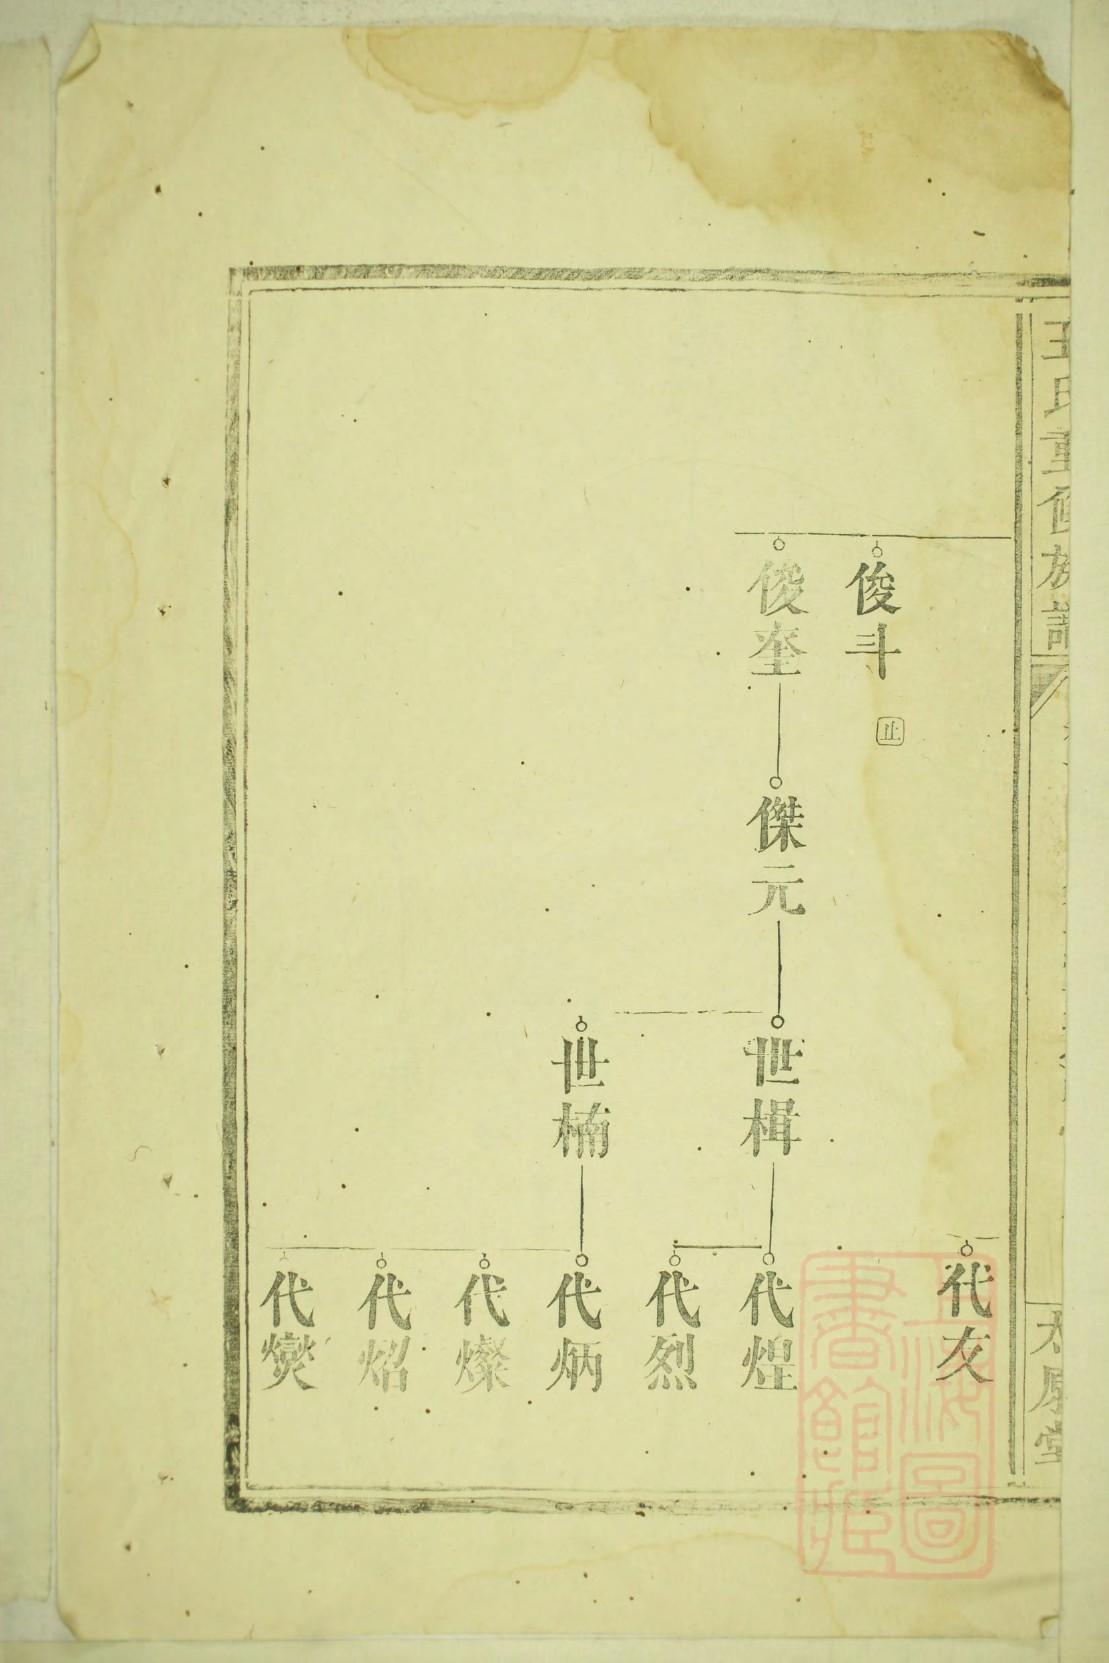 王氏重修族譜
太原堂
俊斗
止
俊奎
傑元
世楫
世楠
代友
代煌
代烈
代炳
代燦
代炤
代燮
上海圖書館藏